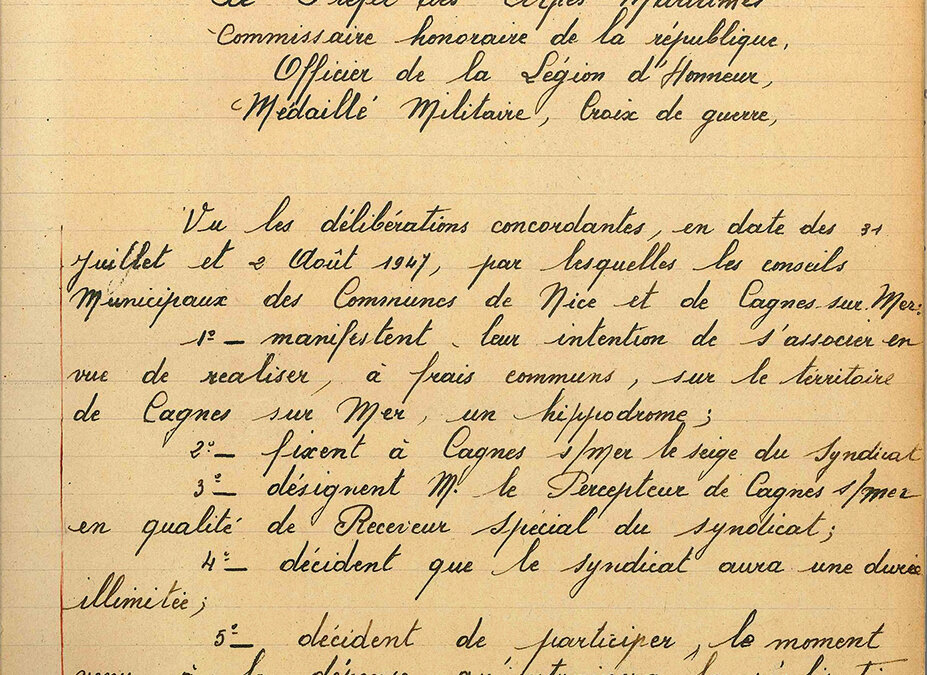 Le Préfet des Alpes Maritimes
Commissaire honoraire de la république,
Officier de la Légion d'Honneur,
Médaillé Militaire, Croix de guerre,
Vu les délibérations concordantes, en date des 31
Juillet et 2 Août 1947, par lesquelles les conseils
Municipaux des Communes de Nice et de Cagnes-sur-Mer:
1º _ manifestent leur intention de s'associer en
vue de realiser, à frais communs, sur le térritoire
de Cagnes sur Mer, un hippodrome;
2º _ fixent à Cagnes s/mer le seige du Syndicat
3º _ désignent M. le Percepteur de Cagnes s/mer
en qualité de Receveur spécial du syndicat;
4º _ décident que le syndicat aura une durée
illimitée;
5º _ décident de participer, le moment
venu à la dépense